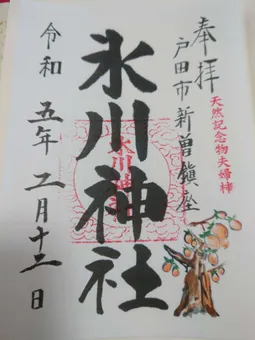 奉拝
天然記念物夫婦欅
戸田市新曽鎮座
氷川神社
氷川神社
令和五年二月十二日